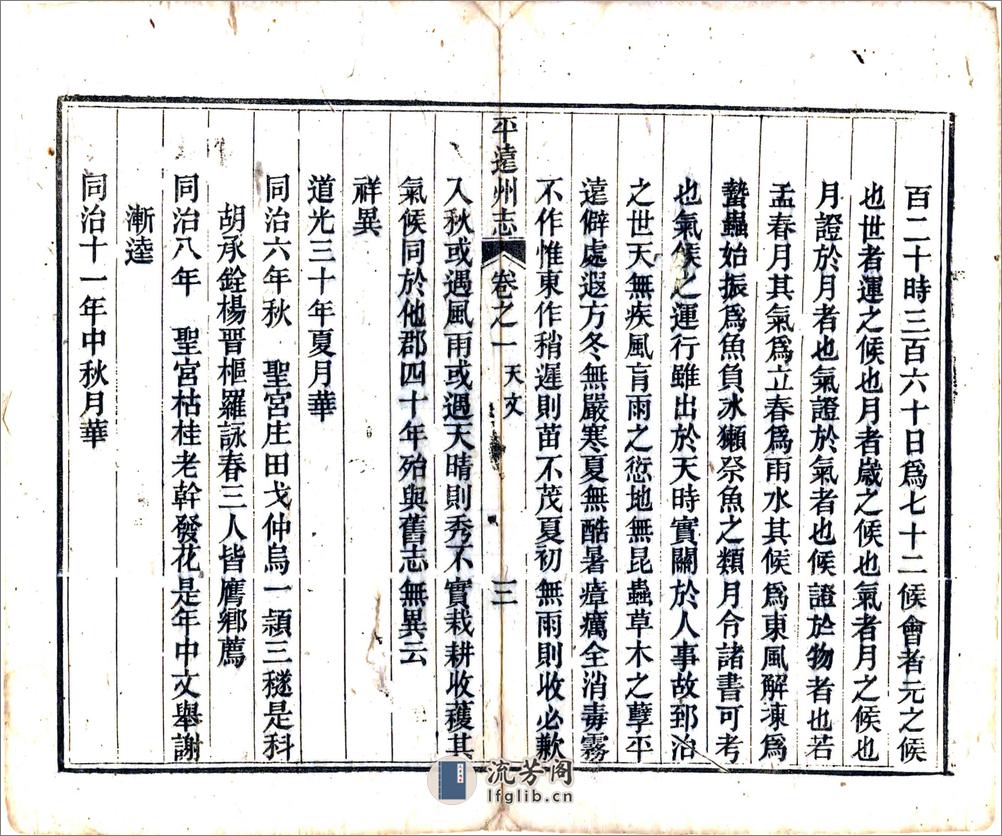 百二十時三百六十日爲七十二候會者元之候
也世者運之候也月者歲之候也氣者月之候也
月證於月者也氣證於氣者也候證於物者也若
孟春月其氣爲立春爲雨水其候爲東風解凍爲
蟄蟲始振爲魚負冰獺祭魚之類月令諸書可考
也氣候之運行雖出於天時實關於人事故郅治
之世天無疾風肓雨之愆地無昆蟲草木之孽平
遠僻處遐方冬無嚴寒夏無酷暑瘴癘全消毒霧
不作惟東作稍遲則苗不茂夏初無雨則收必歉
平遠州志
卷之一
天文
三
入秋或遇風雨或遇天晴則秀不實栽耕收穫其
氣候同於他郡四十年殆與舊志無異云
祥異
道光三十年夏月華
同治六年秋 聖宮庄田戈仲烏一頴三穟是科
胡承銓楊晋樞羅詠春三人皆膺鄉薦
同治八年 聖宮枯桂老幹發花是年中文舉謝
漸逵
同治十一年中秋月華
流芳閣
lfglib.cn